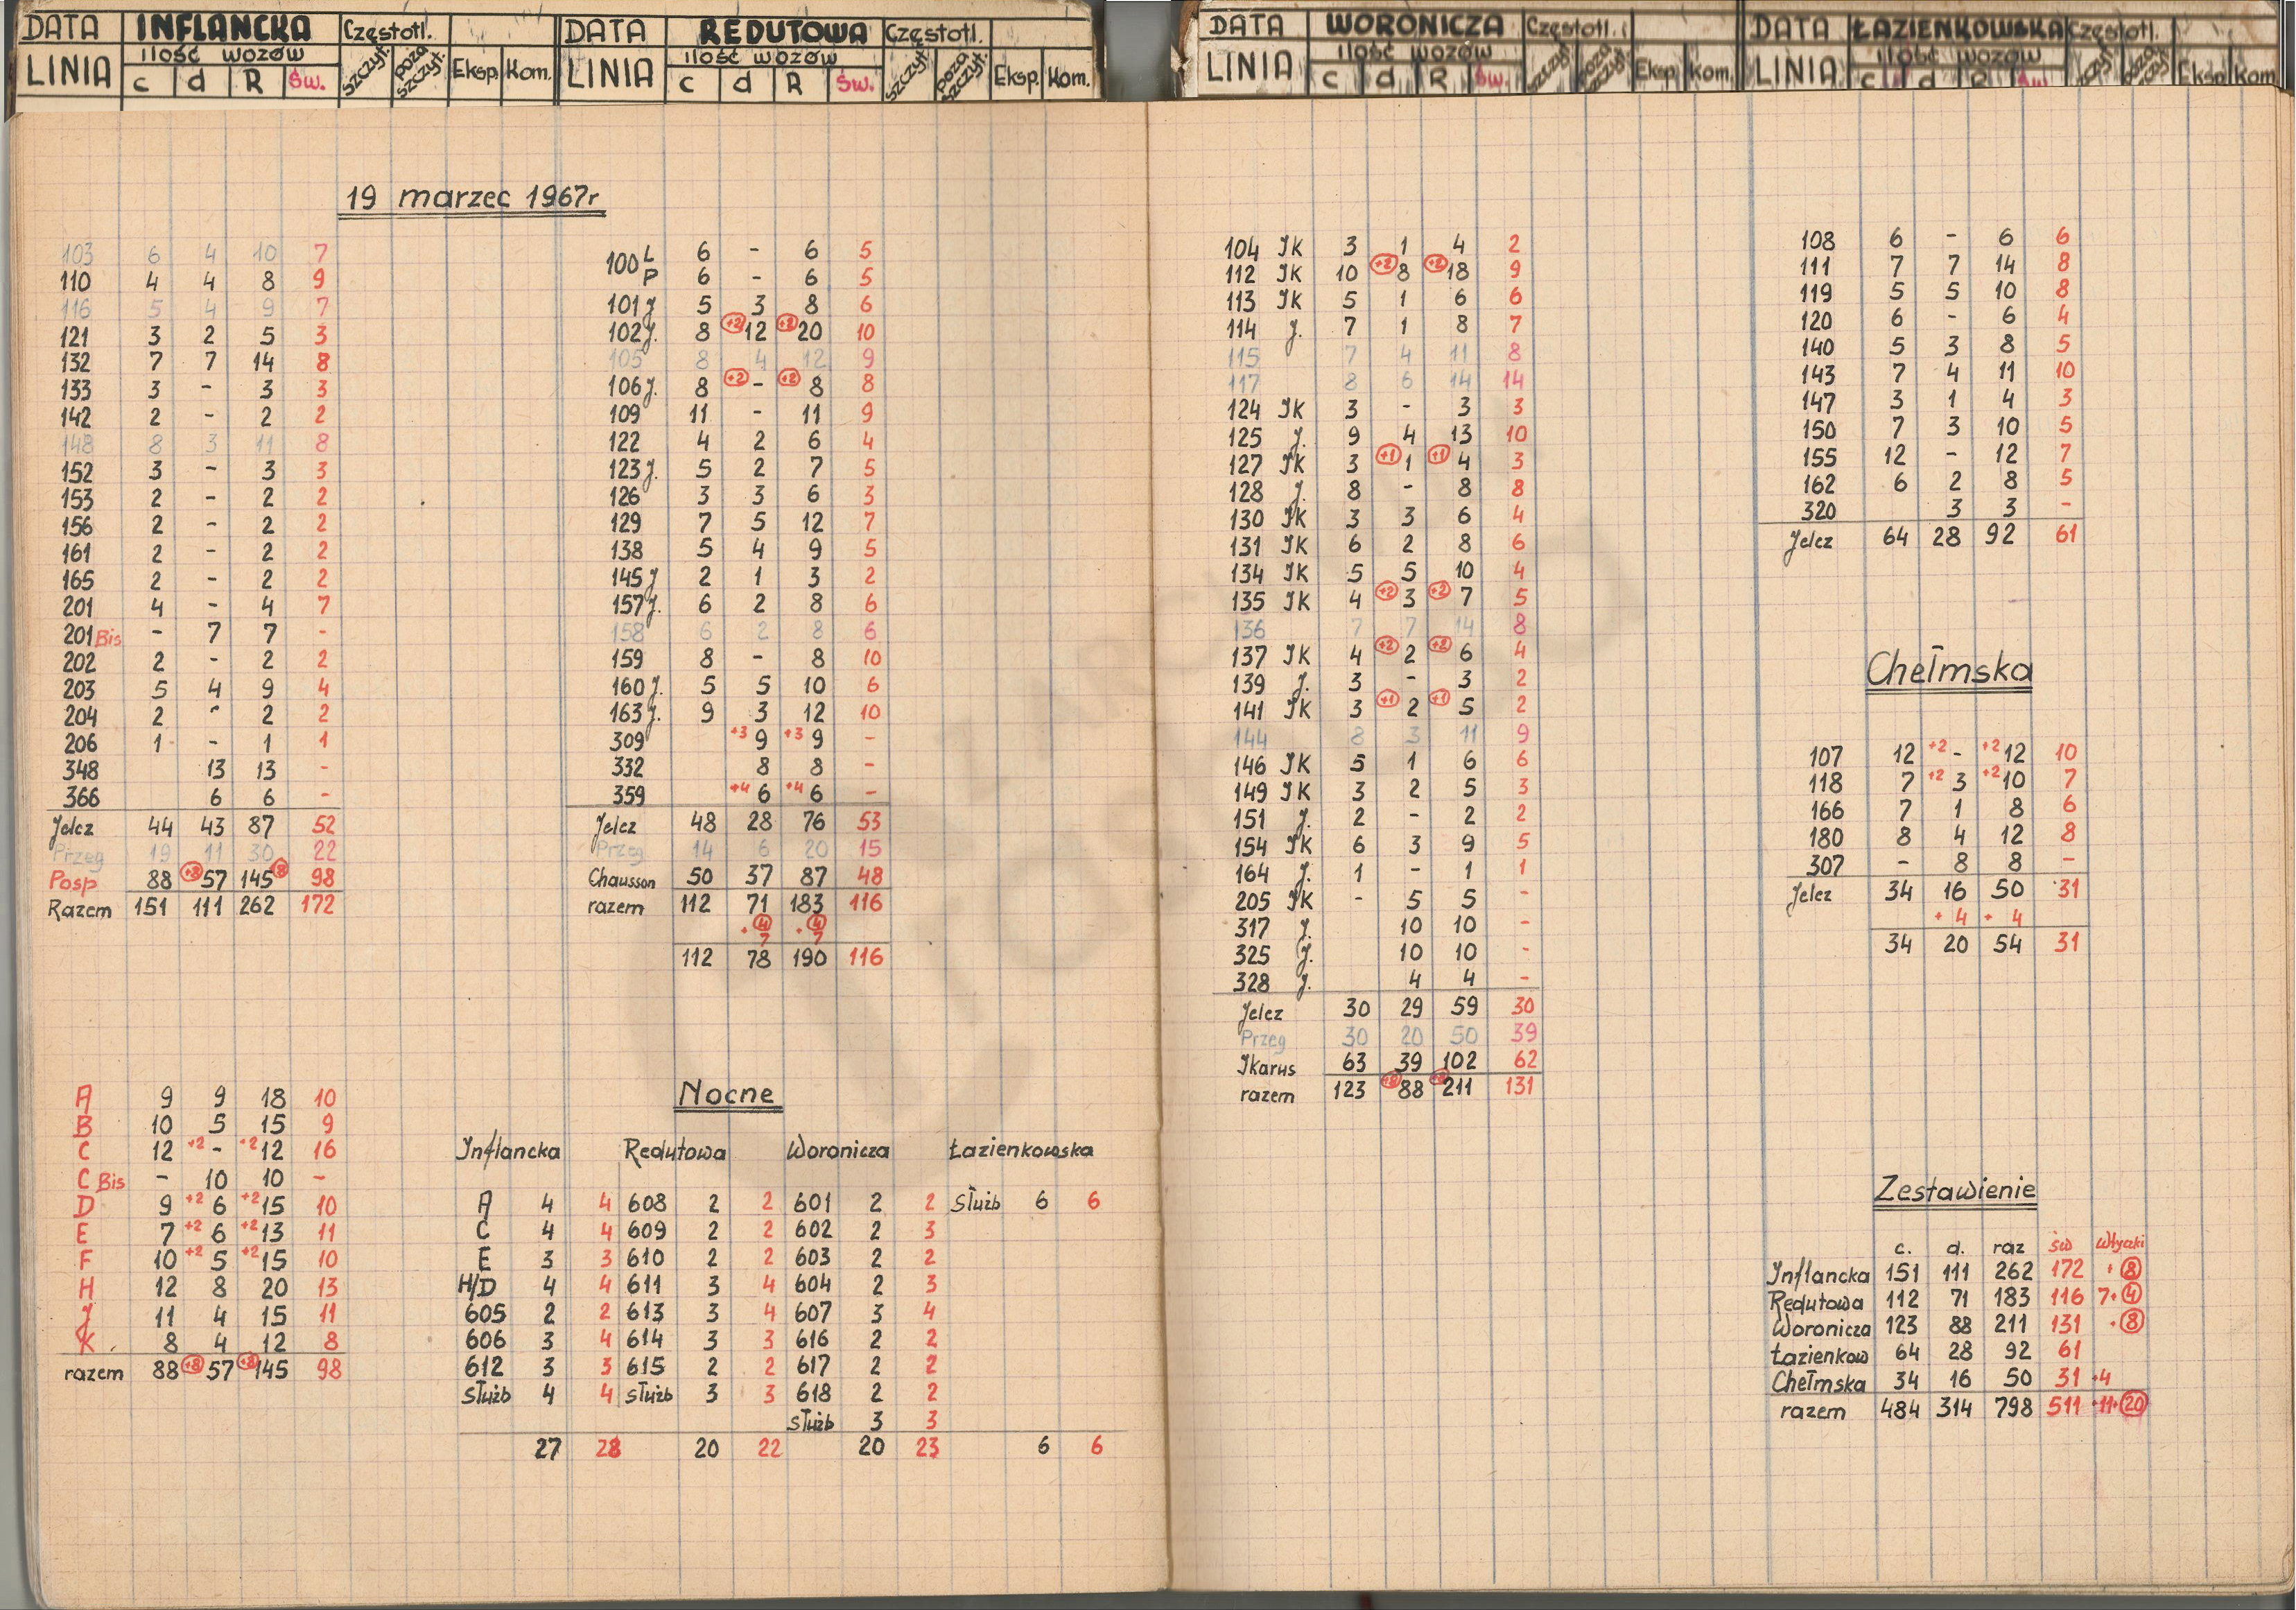 DATA INFLANCKA Częstotl.
LINIA ilość wozów szczyt. poza szczyt. Eksp. Kom.
c d R Św.
DATA REDUTOWA Częstotl.
LINIA ilość wozów szczyt. poza szczyt. Eksp. Kom.
c d R Św.
DATA WORONICZA Częstotl.
LINIA ilość wozów szczyt. poza szczyt. Eksp. Kom.
c d R Św.
DATA ŁAZIENKOWSKA Częstotl.
LINIA ilość wozów szczyt. poza szczyt. Eksp. Kom.
c d R Św.
19 marzec 1967r
103 6 4 10 7
110 4 4 8 9
116 5 4 9 7
121 3 2 5 3
132 7 7 14 8
133 3 - 3 3
142 2 - 2 2
148 8 3 11 8
152 3 - 3 3
153 2 - 2 2
156 2 - 2 2
161 2 - 2 2
165 2 - 2 2
201 4 - 4 7
201 Bis - 7 7 -
202 2 - 2 2
203 5 4 9 4
204 2 - 2 2
206 1 - 1 1
348 13 13 -
366 6 6 -
Jelcz 44 43 87 52
Przeg 19 11 30 22
Posp 88 +8 57 145 +8 98
Razem 151 111 262 172
A 9 9 18 10
B 10 5 15 9
C 12 +2 - +2 12 16
C Bis - 10 10 -
D 9 +2 6 +2 15 10
E 7 +2 6 +2 13 11
F 10 +2 5 +2 15 10
H 12 8 20 13
J 11 4 15 11
K. 8 4 12 8
razem 88 +8 57 +8 145 98
100 L 6 - 6 5
P 6 - 6 5
101 J 5 3 8 6
102 J. 8 +2 12 +2 20 10
105 8 4 12 9
106 J. 8 +2 - +2 8 8
109 11 - 11 9
122 4 2 6 4
123 J. 5 2 7 5
126 3 3 6 3
129 7 5 12 7
138 5 4 9 5
145 J 2 1 3 2
157 J. 6 2 8 6
158 6 2 8 6
159 8 - 8 10
160 J. 5 5 10 6
163 J. 9 3 12 10
309 +3 9 +3 9 -
332 8 8 -
359 +4 6 +4 6 -
Jelcz 48 28 76 53
Przeg 14 6 20 15
Chausson 50 37 87 48
razem 112 71 183 116
+ 4 + 4
7 7
112 78 190 116
Nocne
Inflancka Redutowa Woronicza Łazienkowska
A 4 4 608 2 2 601 2 2 Służb 6 6
C 4 4 609 2 2 602 2 3
E 3 3 610 2 2 603 2 2
H/D 4 4 611 3 4 604 2 3
605 2 2 613 3 4 607 3 4
606 3 4 614 3 3 616 2 2
612 3 3 615 2 2 617 2 2
służb 4 4 służb 3 3 618 2 2
służb 3 3
27 28 20 22 20 23 6 6
104 JK 3 1 4 2
112 JK 10 +2 8 +2 18 9
113 JK 5 1 6 6
114 J. 7 1 8 7
115 7 4 11 8
117 8 6 14 14
124 JK 3 - 3 3
125 J. 9 4 13 10
127 JK 3 +1 1 +1 4 3
128 J. 8 - 8 8
130 JK 3 3 6 4
131 JK 6 2 8 6
134 JK 5 5 10 4
135 JK 4 +2 3 +2 7 5
136 7 7 14 8
137 JK 4 +2 2 +2 6 4
139 J. 3 - 3 2
141 JK 3 +1 2 +1 5 2
144 8 3 11 9
146 JK 5 1 6 6
149 JK 3 2 5 3
151 J. 2 - 2 2
154 JK 6 3 9 5
164 J. 1 - 1 1
205 JK - 5 5 -
317 J. 10 10 -
325 J. 10 10 -
328 J. 4 4 -
Jelcz 30 29 59 30
Przeg 30 20 50 39
Ikarus 63 39 102 62
razem 123 +8 88 +8 211 131
108 6 - 6 6
111 7 7 14 8
119 5 5 10 8
120 6 - 6 4
140 5 3 8 5
143 7 4 11 10
147 3 1 4 3
150 7 3 10 5
155 12 - 12 7
162 6 2 8 5
320 3 3 -
Jelcz 64 28 92 61
Chełmska
107 12 +2 - +2 12 10
118 7 +2 3 +2 10 7
166 7 1 8 6
180 8 4 12 8
307 - 8 8 -
Jelcz 34 16 50 31
+ 4 + 4
34 20 54 31
Zestawienie
c. d. raz św Wtyczki
Inflancka 151 111 262 172 + 8
Redutowa 112 71 183 116 7+ 4
Woronicza 123 88 211 131 + 8
Łazienkow 64 28 92 61
Chełmska 34 16 50 31 +4
razem 484 314 798 511 +11+ 20